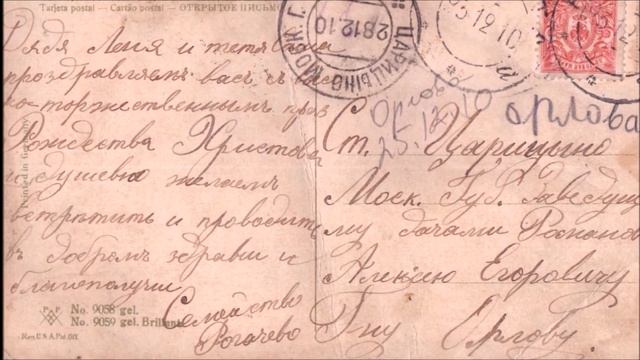 Tarjeta postal — Cartão postal — ОТКРЫТОЕ ПИСЬМО
Дядя Леня и тетя
проздравляемъ васъ съ
торжественнымъ
Рождества Христова
и душевно желаемъ
встрѣтить и проводить
въ добромъ здравіи и
благополучи
Семейство
Рогачево
Printed in Germany
No. 9058 gel.
No. 9059 gel. Brillant
ЦАРИЦЫНО МОСК. Г.
28 12 10
12 10
Орлова
25.12.10
орлова
Ст. Царицыно
Моск. Губ. Заведущ
му дачами
Алексѣю Егоровичу
Гну Орлову